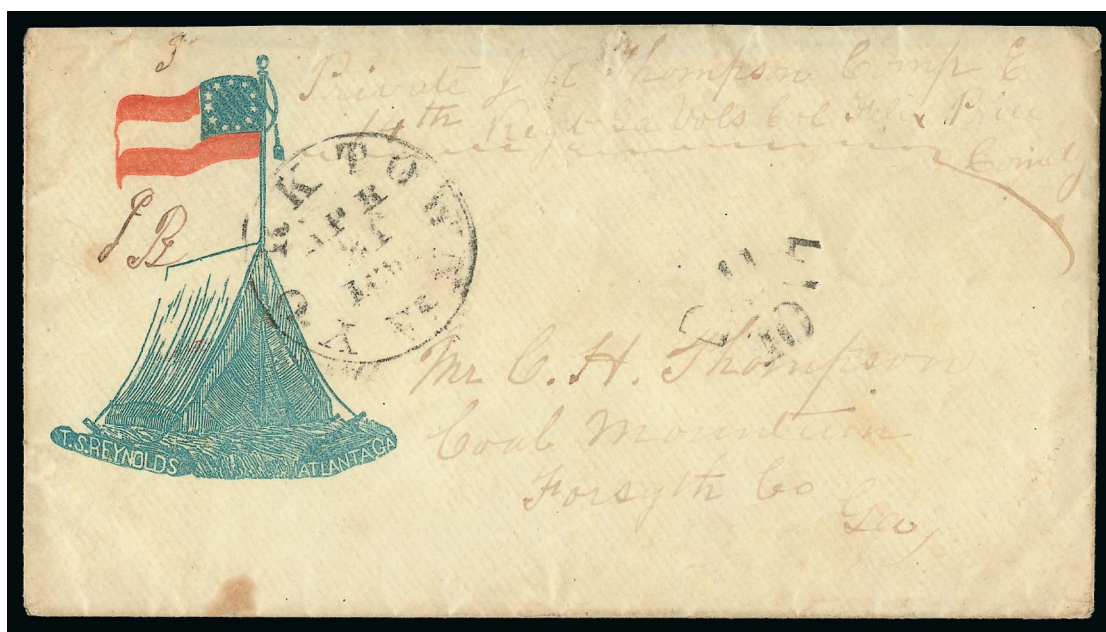 Private J A Thompson Comp E
14th Regt Ga Vols Col Felix Price
Comdg
J B
YORKTOWN
APR
21
Mr. C. H. Thompson
Coal Mountain
Forsyth Co
Geo,
T.S.REYNOLDS ATLANTA GA